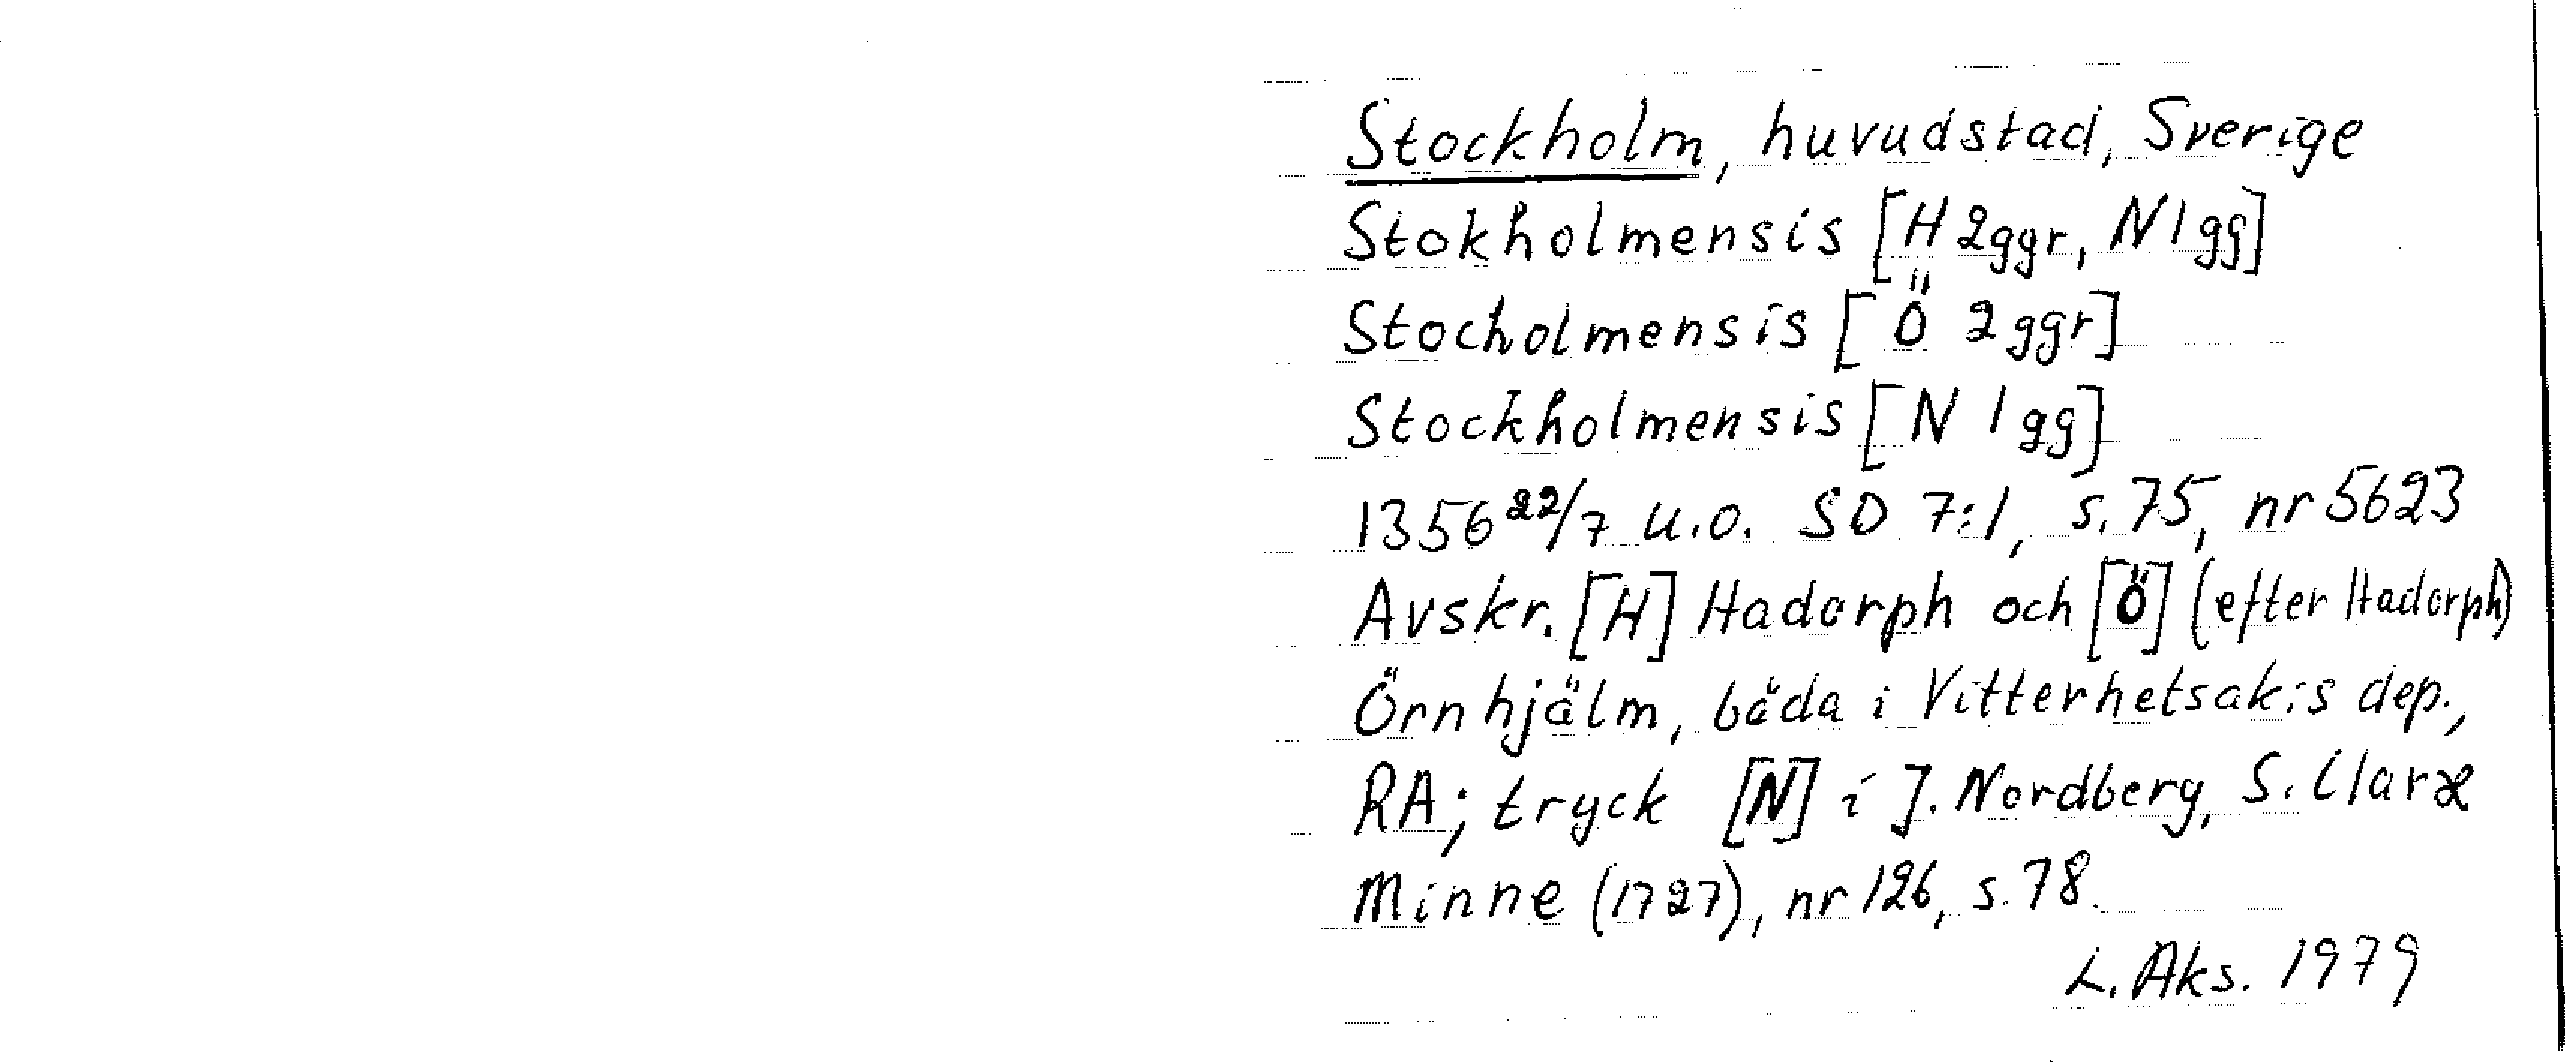 Stockholm, huvudstad, Sverige
Stokholmensis [H 2ggr, N 1 gg]
Stocholmensis [Ö 2 ggr]
Stockholmensis [N 1 gg]
1356 22/7 u.o. SD 7:1, s. 75, nr 5623
Avskr. [H] Hadorph och [Ö] (efter Hadorph)
Örnhjälm, båda i Vitterhetsak:s dep.,
RA; tryck [N] i J. Nordberg, S. Claræ
Minne (1727), nr 126, s. 78.
L. Aks. 1979